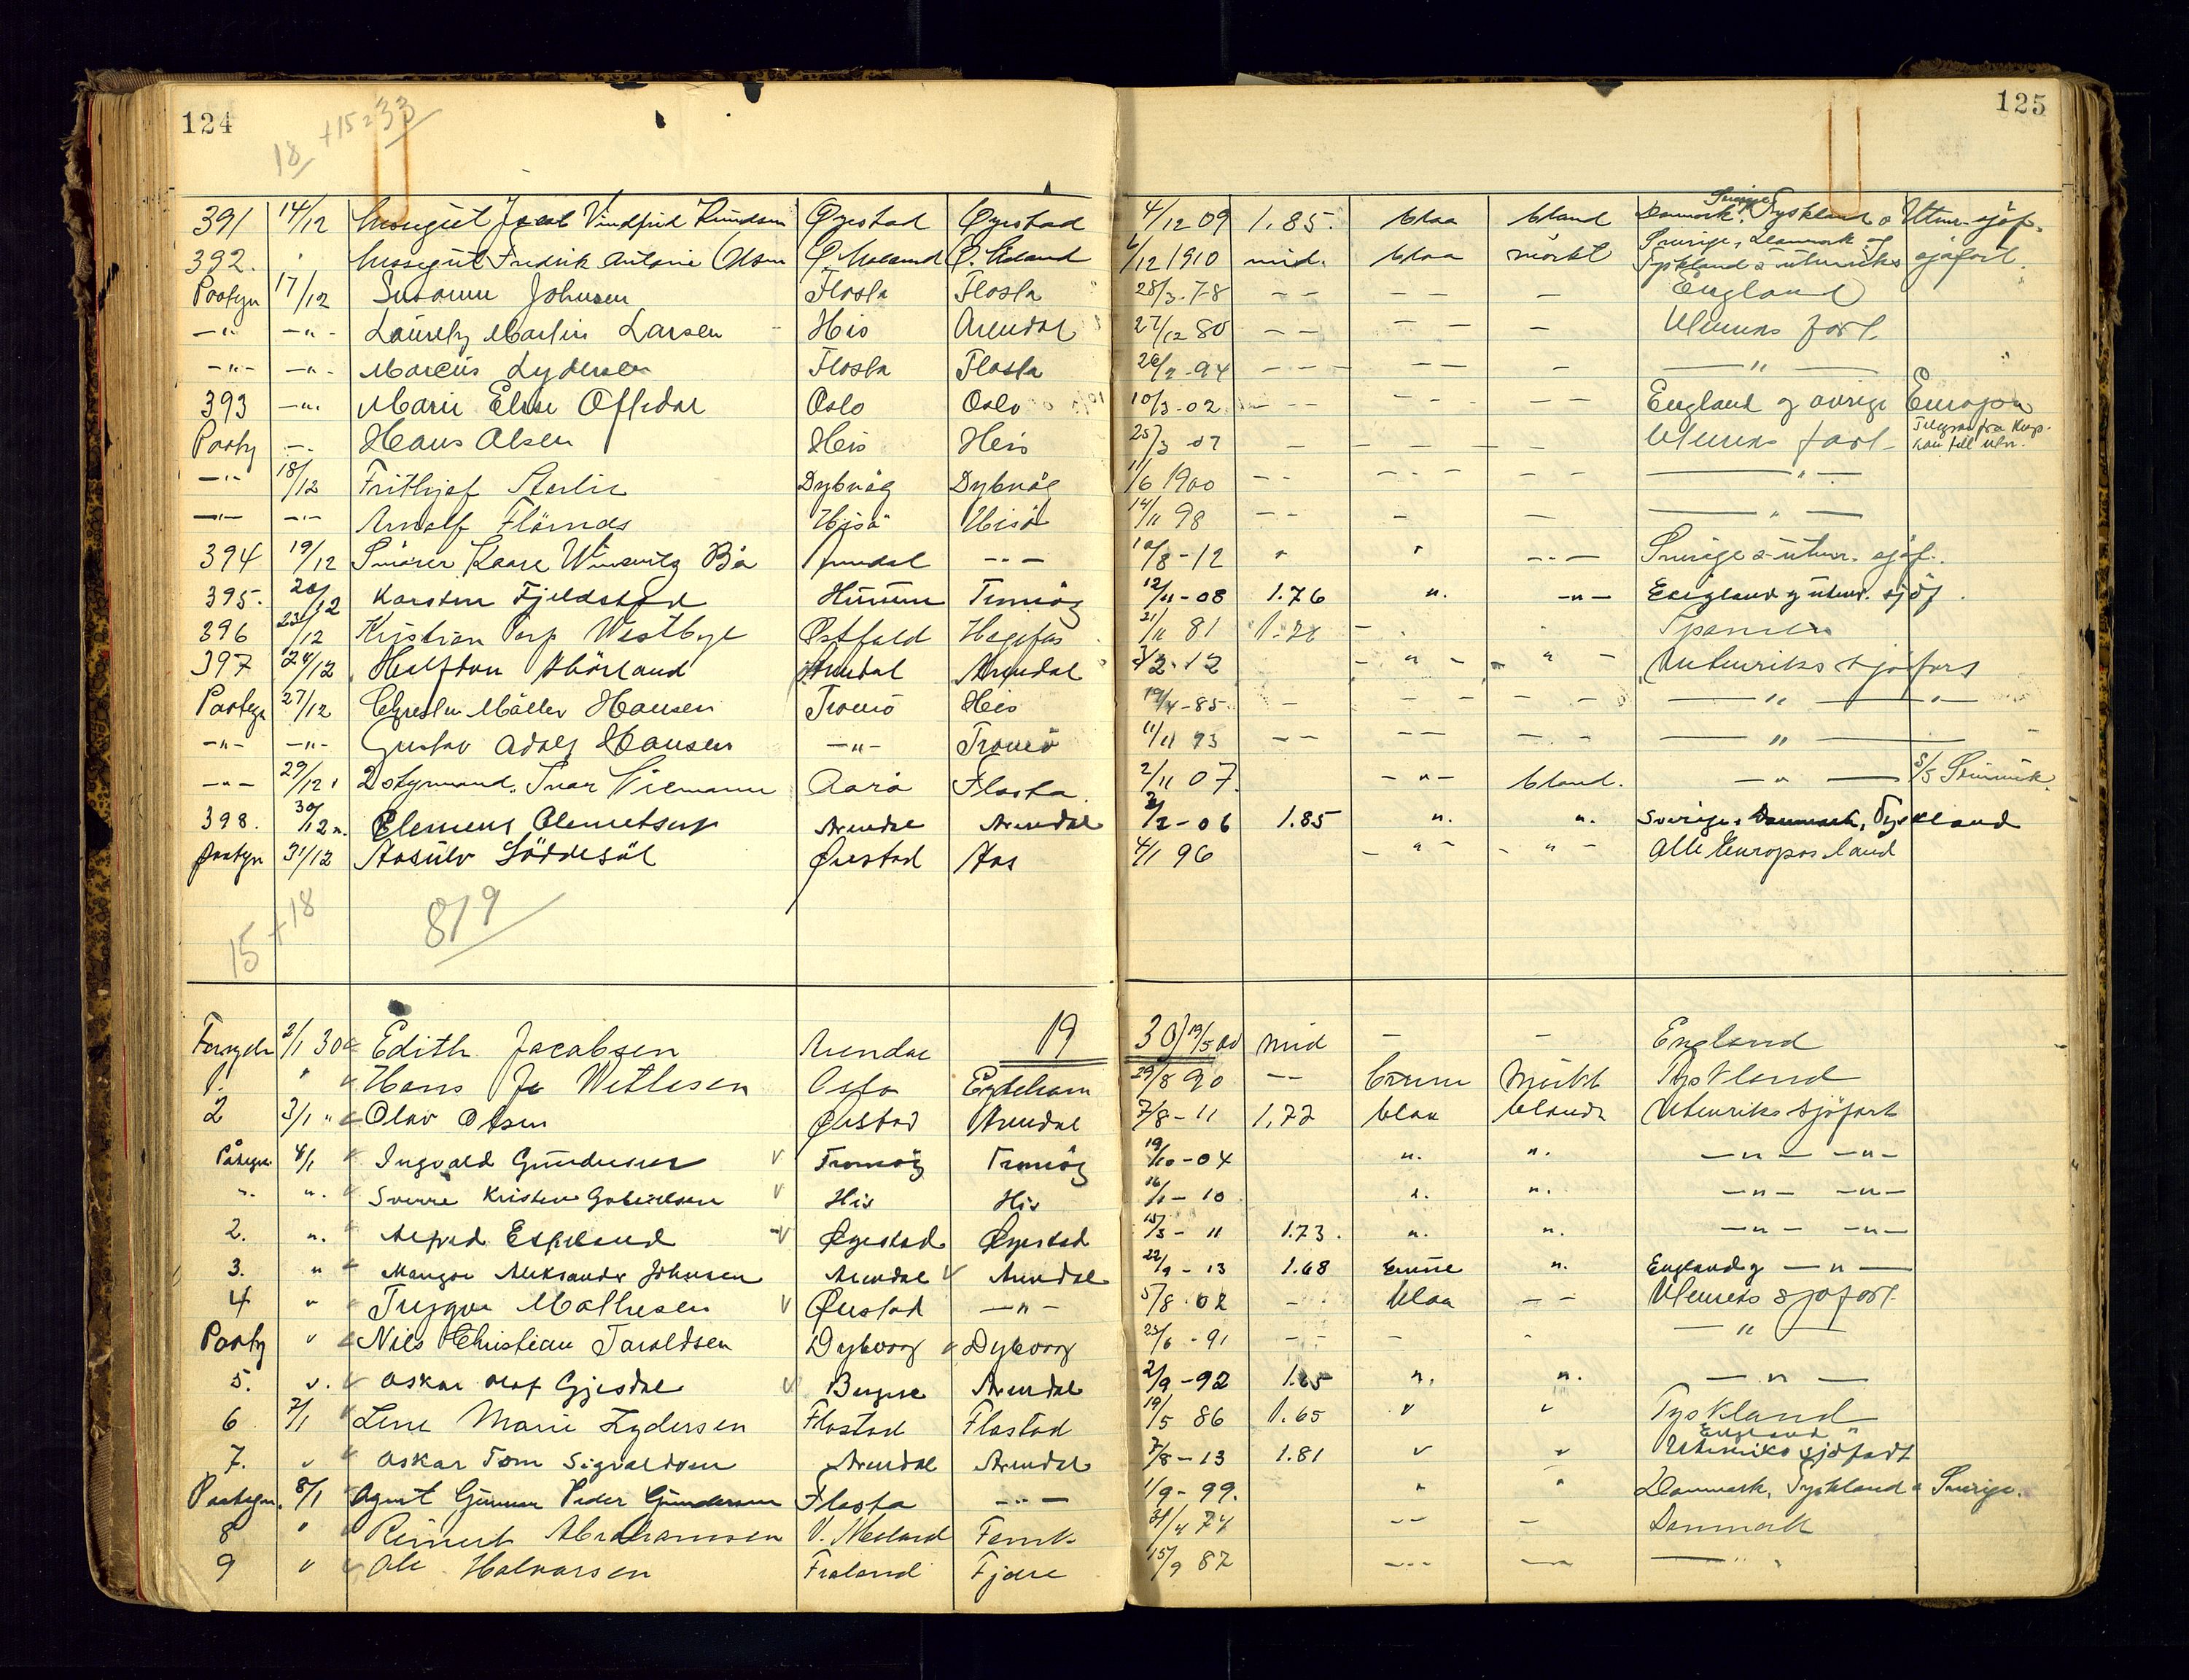 124
18 +15=33
125
391 14/12 Messegut Jacob Vindfrid Knudsen Øyestad Øyestad 4/12 09 1.85. blaa bland Danmark. Sverige Tyskland o Utenr. sjøf.
392. " Messegut Fredrik Antonie Olsen Ø. Moland Ø. Moland 6/12 1910 mid. blaa mörkt Sverige, Danmark og Tyskland & utenriks sjøfart.
Paategn 17/12 Susanne Johnsen Flosta Flosta 28/3.78 - - - - - England
-"- -"- Lauritz Martin Larsen His Arendal 27/12 80 - - - - - Utenriks fart.
-"- -"- Marcus Lydersen Flosta Flosta 26/2-94 - - - - - - -"-
393 -"- Marie Elise Oftedal Oslo Oslo 10/3-02 - - - - - - England og øvrige Europa
Paateg -"- Hans Olsen His His 25/3 07 - - - - - Utenriks fart- Telegram fra
-"- 18/12 Frithjof Dybvåg Dybvåg 11/6 1900 - - - - - - -"-
-"- -"- Arnolf Hisö Hisö 14/11 98 - - - - -"-
394 19/12 Kaare Bå Arendal - - - 10/8-12 " " - - - Sverige & utenr. sjøf.
395. 20/12 Karsten Fjeldsted Tromöy 12/11-08 1.76 ". -"- England og utenr. sjöf.
396 23/12 Kristian Torp Westbye Østfold 21/11 81 1.76 - . . Spanien
397 24/12 Halfdan Arendal Arendal 3/2.12 - " - - " - Utenriks sjøfart
Paategn 27/12 Christen Möller Hansen Tromö His 19/4-85. - - - - - -"- -"-
-"- -"- Gustav Adolf Hansen -"- Tromö 11/11 93 - - - - - - -"-
-"- 29/12. 2 styrmand. Ivar Aarö Flosta. 2/11 07. -"- bland. -"- S/S
398. 30/12 ". Clemens Clemetsen Arendal Arendal 2/2-06 1.85 ". ". Sverige, Danmark, Tyskland
Paategn 31/12 Aasulv Löddesöl Øiestad Aas 4/1 96 - " - - " - Alle Europas land
15+18
819
2/1 30 Edith Jacobsen Arendal 19 30) 19/5 00 mid - - England
1. " Hans Jo Wetlesen Oslo Eydehavn 29/8 90 - - brune Mörkt Tyskland
2 3/1 " Olav Olsen Øiestad Arendal 7/8-11 1.72 blaa blandt Utenriks sjöfart
Påtegn 4/1 Ingvald Gundersen Tromöy Tromöy 19/10-04 ". ". -"- -"-
". ". Sverre Kristen Gabrielsen His His 16/1-10 ". ". -"- -"-
2. ". Alfred Eskeland Øyestad Øyestad 15/3-11 1.73. ". ". -"- -"-
3. " Mangor Aleksander Johnsen Arendal Arendal 22/9-13 1.68 brune ". England og -"-
4 " Trygve Mathisen Øiestad -"- 5/8.02 - . blaa - - Utenriks sjøfart.
Paateg " Nils Christian Taraldsen Dybvaag Dybvaag 25/6-91 - - - - -"-
5. ". Oskar Olaf Gjesdal Bergen Arendal 2/9-92 1.65 ". ". -"-
6 7/1 Lene Marie Lydersen Flostad Flostad 19/5 86 1.65 " " Tyskland
7. " Oskar Tom Sigvaldsen Arendal Arendal 7/8-13 1.81 " " England " Utenriks sjöfart
Paategn. 8/1 Agent Gunnar Peder Gundersen Flosta -"- 1/9-99. " " Danmark, Tyskland & Sverige.
8 " Reinert Abrahamsen V. Moland 4 74 - - - Danmark
9 " Ole Halvorsen Froland Fjære 15/9 87 - - - -"- -"-